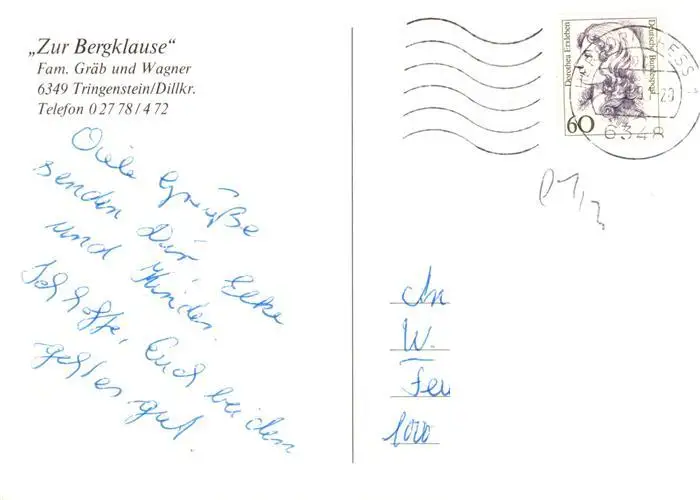 „Zur Bergklause“
Fam. Gräb und Wagner
6349 Tringenstein/Dillkr.
Telefon 0 27 78 / 4 72
Viele Grüße
senden Dir Elke
und Kinder.
Ich hoffe, Euch beiden
geht es gut.
Dorothea Erxleben
Deutsche Bundespost
60
6348
An
W.
Feu
1000